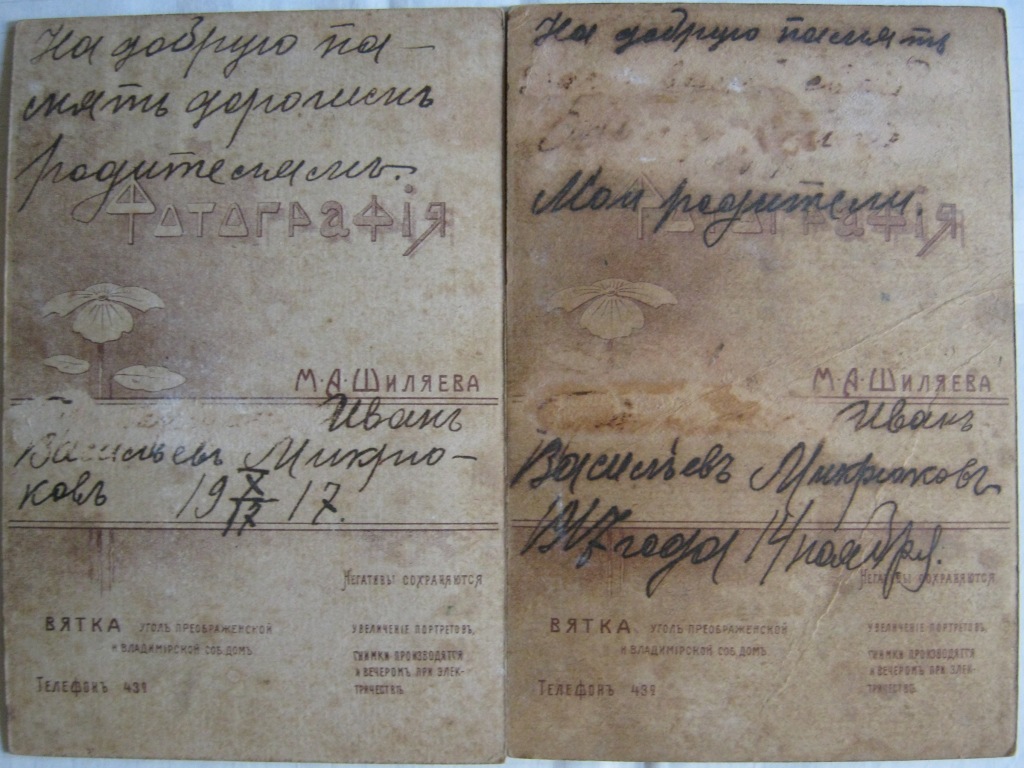 На добрую па-
мять дорогимъ
родителямъ.
Фотографія
М·А·Шиляева
Иванъ
Васильевъ Микрю-
ковъ 19 X/17 17.
Негативы сохраняются
ВЯТКА уголъ Преображенской
и Владимірской соб. домъ
Телефонъ 439
Увеличеніе портретовъ,
снимки производятся
и вечеромъ при элек-
тричествѣ.
На добрую память
Мои родители.
Фотографія
М·А·Шиляева
Иванъ
Васильевъ Микрюковъ
1917 года 14 ноября.
Негативы сохраняются
ВЯТКА уголъ Преображенской
и Владимірской соб. домъ
Телефонъ 439
Увеличеніе портретовъ,
снимки производятся
и вечеромъ при элек-
тричествѣ.